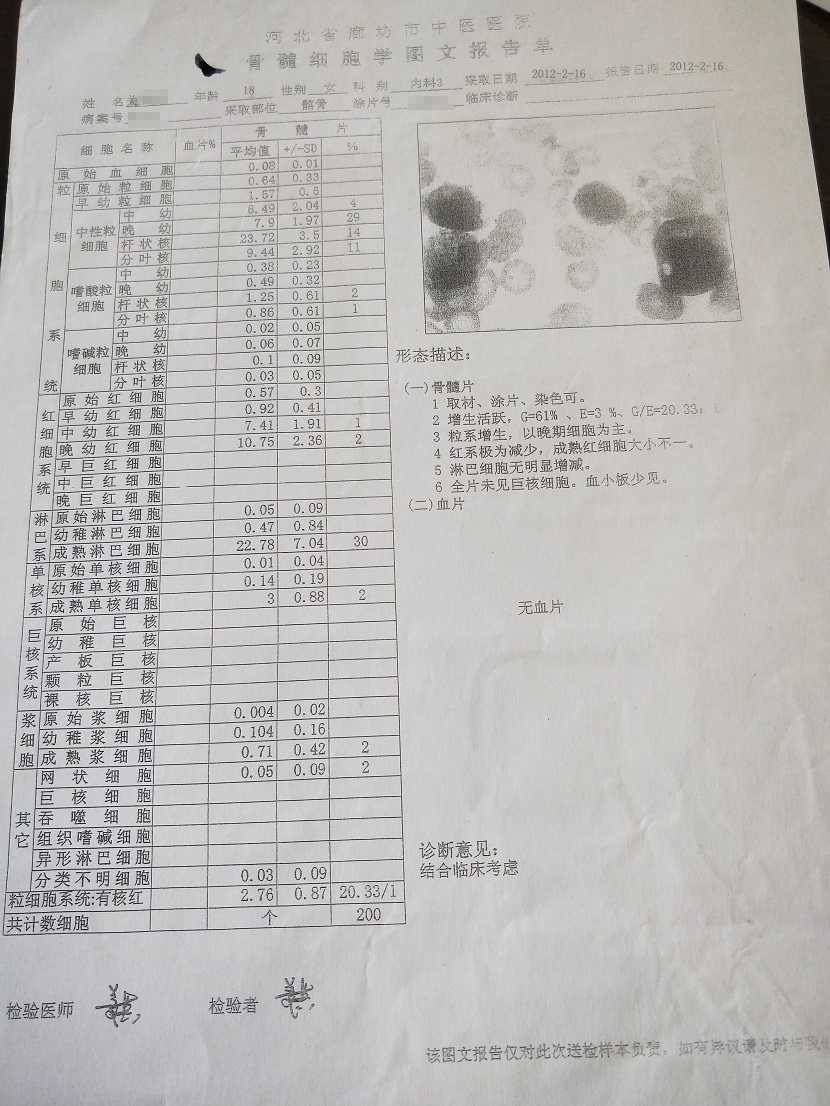 河北省廊坊市中医医院
骨髓细胞学图文报告单
姓 名 年龄 18 性别 女 科 别 内科3 采取日期 2012-2-16 报告日期 2012-2-16
病案号 采取部位 髂骨 涂片号 临床诊断
细胞名称 血片% 骨 髓 片
平均值 +/-SD %
原始血细胞 0.08 0.01
粒细胞系统 原始粒细胞 0.64 0.33
早幼粒细胞 1.57 0.6
中性粒细胞 中幼 6.49 2.04 4
晚幼 7.9 1.97 29
杆状核 23.72 3.5 14
分叶核 9.44 2.92 11
嗜酸粒细胞 中幼 0.38 0.23
晚幼 0.49 0.32
杆状核 1.25 0.61 2
分叶核 0.86 0.61 1
嗜碱粒细胞 中幼 0.02 0.05
晚幼 0.06 0.07
杆状核 0.1 0.09
分叶核 0.03 0.05
红细胞系统 原始红细胞 0.57 0.3
早幼红细胞 0.92 0.41
中幼红细胞 7.41 1.91 1
晚幼红细胞 10.75 2.36 2
早巨红细胞
中巨红细胞
晚巨红细胞
淋巴系 原始淋巴细胞 0.05 0.09
幼稚淋巴细胞 0.47 0.84
成熟淋巴细胞 22.78 7.04 30
单核系 原始单核细胞 0.01 0.04
幼稚单核细胞 0.14 0.19
成熟单核细胞 3 0.88 2
巨核系统 原始巨核
幼稚巨核
产板巨核
颗粒巨核
裸核巨核
浆细胞 原始浆细胞 0.004 0.02
幼稚浆细胞 0.104 0.16
成熟浆细胞 0.71 0.42 2
其它 网状细胞 0.05 0.09 2
巨核细胞
吞噬细胞
组织嗜碱细胞
异形淋巴细胞
分类不明细胞 0.03 0.09
粒细胞系统:有核红 2.76 0.87 20.33/1
共计数细胞 个 200
形态描述:
(一)骨髓片
1 取材、涂片、染色可。
2 增生活跃,G=61% 、E=3 %、G/E=20.33:
3 粒系增生,以晚期细胞为主。
4 红系极为减少,成熟红细胞大小不一。
5 淋巴细胞无明显增减。
6 全片未见巨核细胞。血小板少见。
(二)血片
无血片
诊断意见:
结合临床考虑
检验医师 检验者
该图文报告仅对此次送检样本负责,如有异议请及时与我